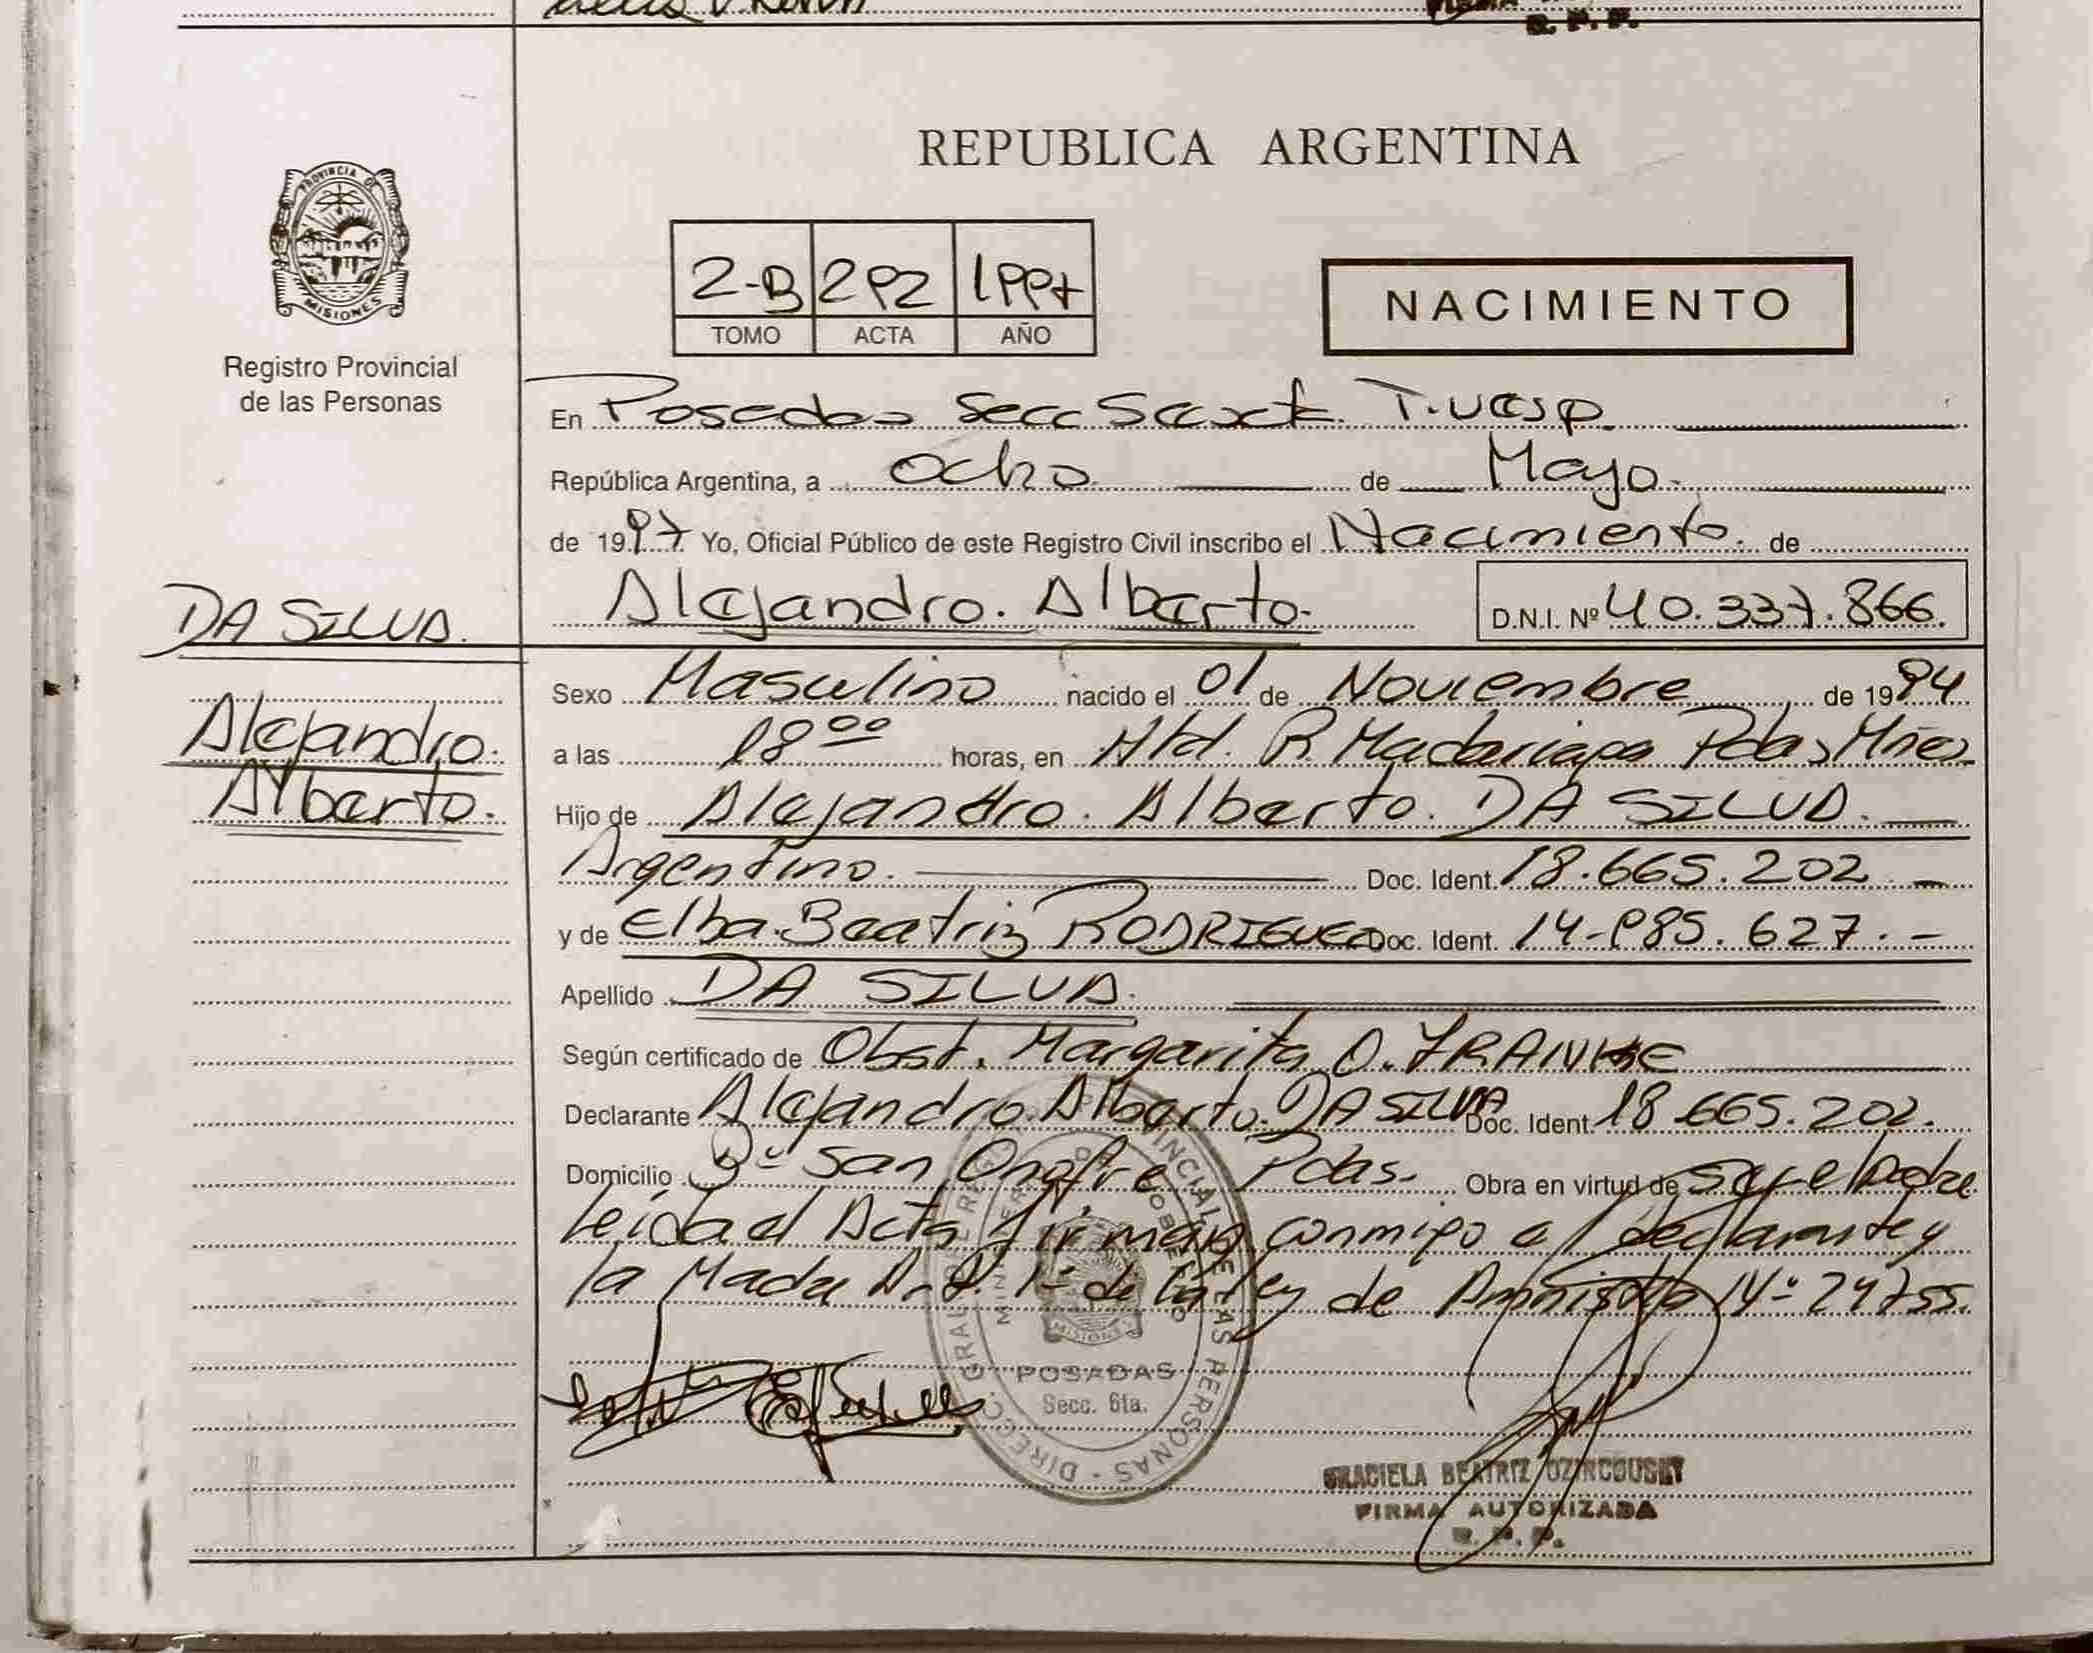 R. P. P.
PROVINCIA DE
MISIONES
Registro Provincial
de las Personas
REPUBLICA ARGENTINA
2-B 292 1997
TOMO ACTA AÑO
NACIMIENTO
En Posadas Secc Sexta T. Vesp.
República Argentina, a Ocho de Mayo.
de 1997 Yo, Oficial Público de este Registro Civil inscribo el Nacimiento. de
Alejandro. Alberto. D.N.I. Nº 40.337.866.
DA SILVA.
Alejandro.
Alberto.
Sexo Masculino nacido el 01 de Noviembre de 1994
a las 18 00 horas, en Htal. R. Madariaga Pdas Mnes
Hijo de Alejandro. Alberto. DA SILVA.
Argentino. Doc. Ident. 18.665.202
y de Elba. Beatriz RODRIGUEZ Doc. Ident. 14-985.627.-
Apellido DA SILVA.
Según certificado de Obst. Margarita O. FRANKE
Declarante Alejandro. Alberto. DA SILVA Doc. Ident. 18.665.202.
Domicilio Bº San Onofre Pdas. Obra en virtud de ser el Padre
leída el Acta firman conmigo el declarante y
la Madre Art. 1º de la Ley de Amnistía Nº 24755.
DIRECC. GRAL. DE REG. PROVINCIAL DE LAS PERSONAS
MISIONES
POSADAS
Secc. 6ta.
GRACIELA BEATRIZ
FIRMA AUTORIZADA
R. P. P.